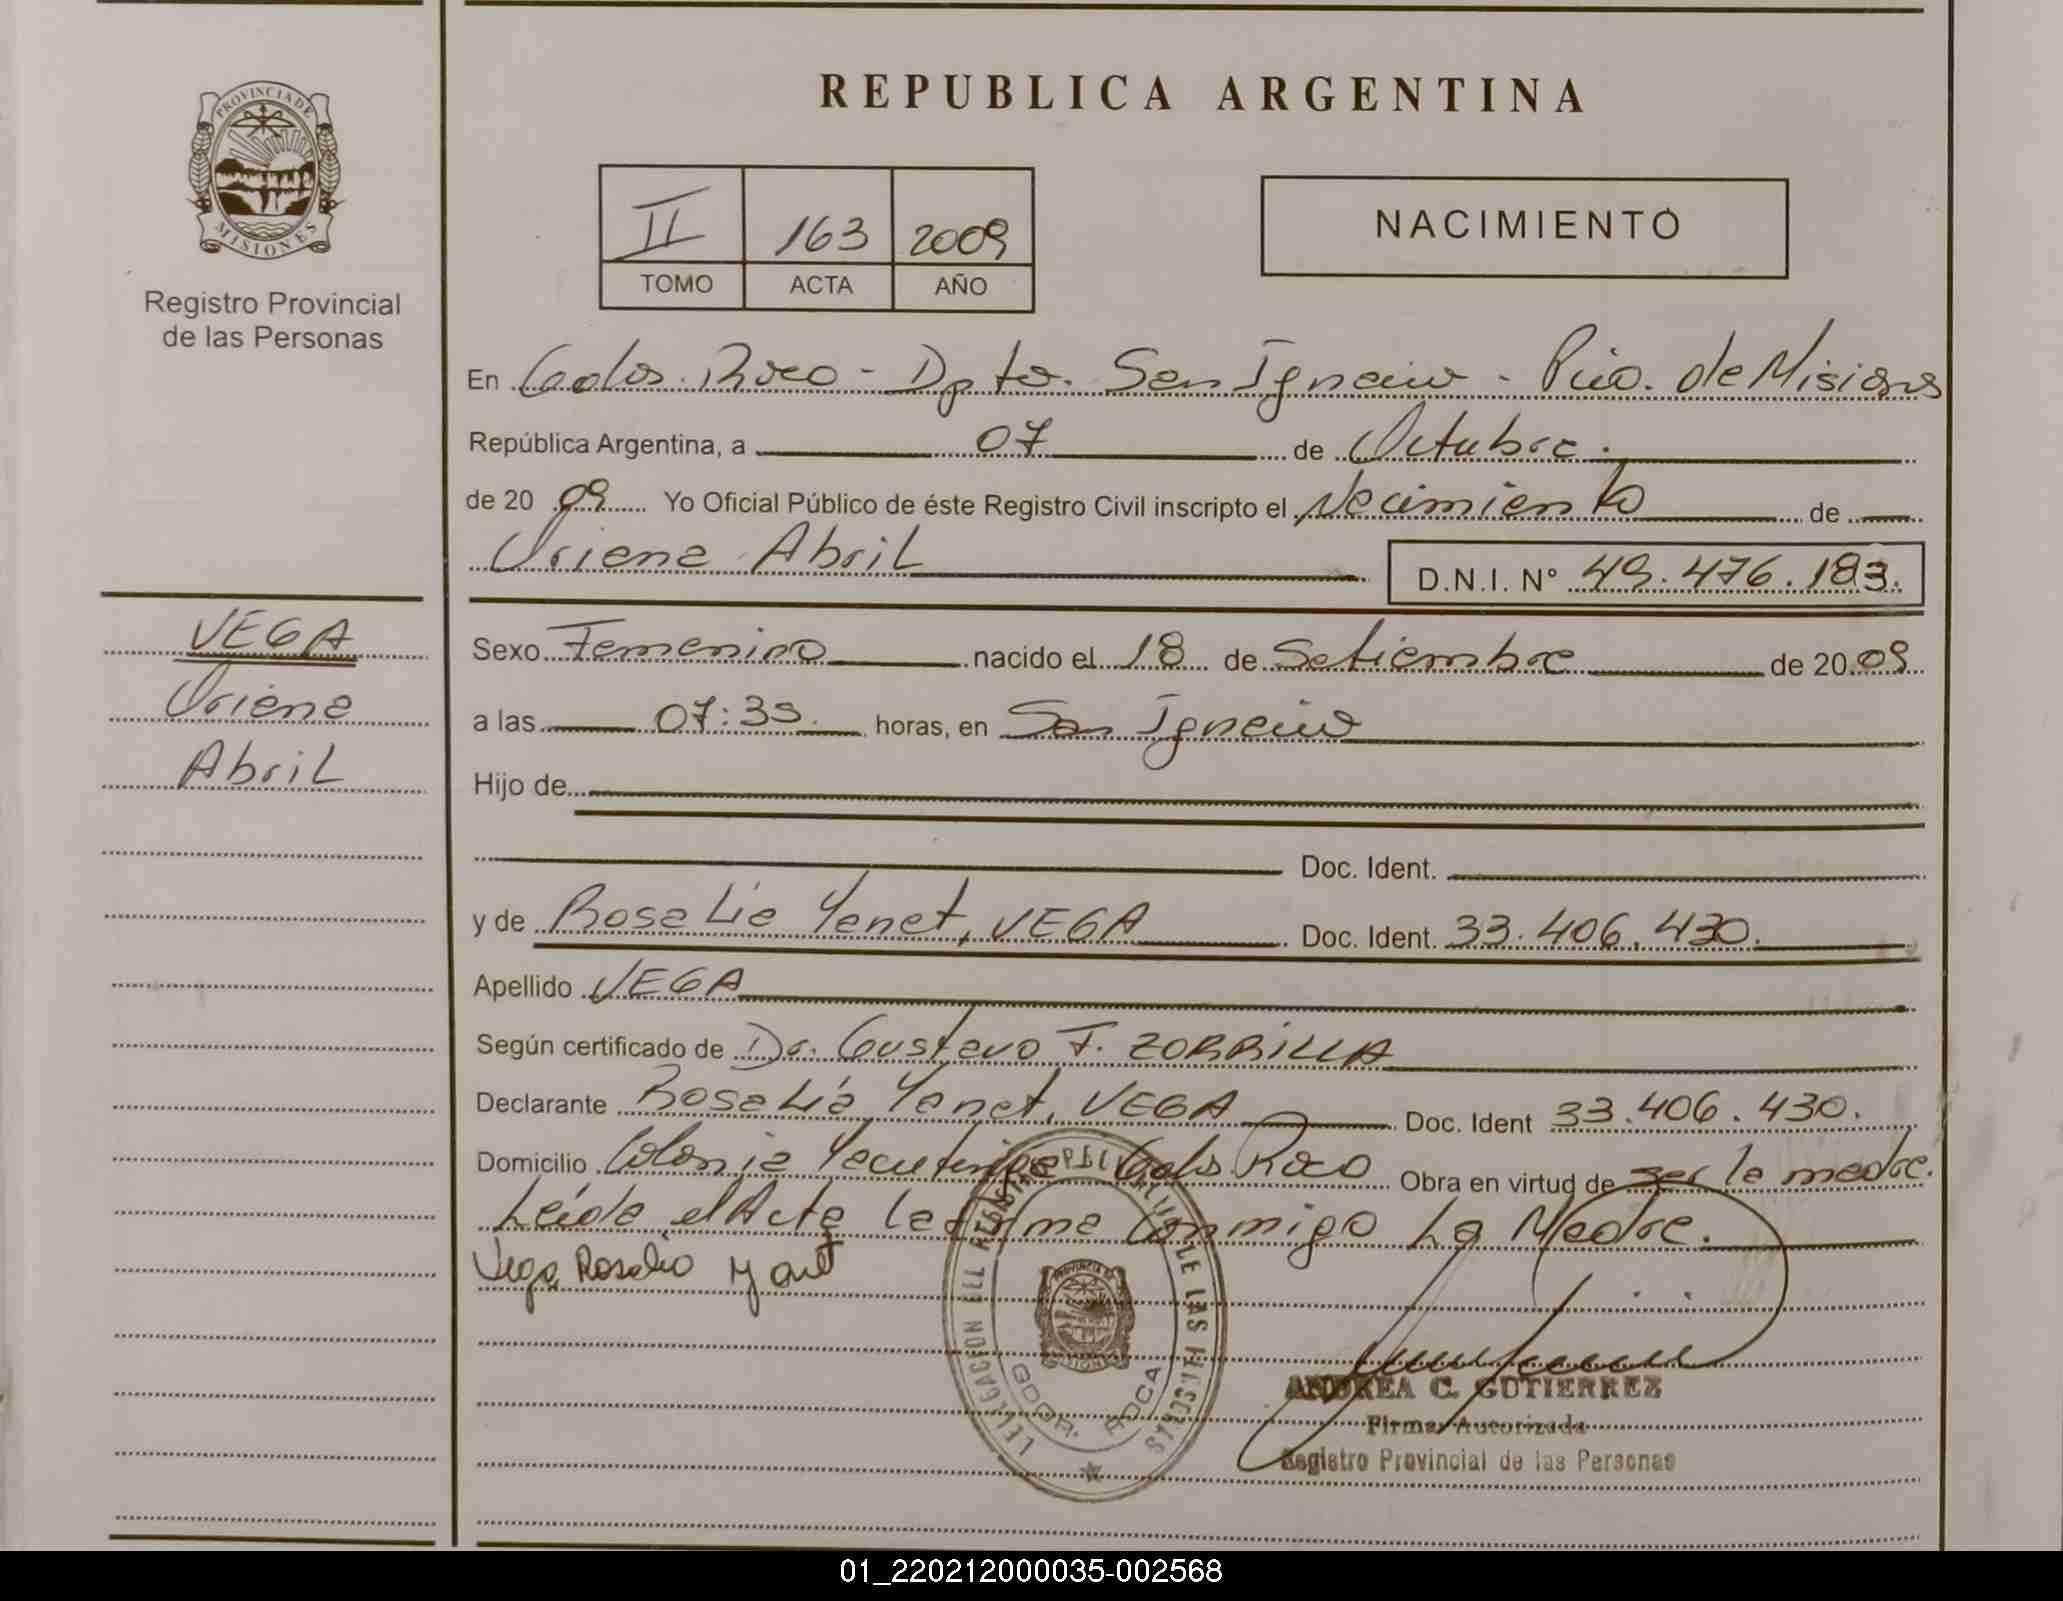 PROVINCIA DE
MISIONES
Registro Provincial
de las Personas
VEGA
Oriana
Abril
REPUBLICA ARGENTINA
II 163 2009
TOMO ACTA AÑO
NACIMIENTO
En Gdor. Roca - Dpto. San Ignacio - Pcia. de Misiones
República Argentina, a 07 de Octubre.
de 20 09 Yo Oficial Público de éste Registro Civil inscripto el Nacimiento de
Oriana Abril D.N.I. N° 49.476.183.
Sexo Femenino nacido el 18 de Setiembre de 20 09
a las 07:35 horas, en San Ignacio
Hijo de
Doc. Ident.
y de Rosalia Yanet, VEGA Doc. Ident. 33.406.430.
Apellido VEGA
Según certificado de Dr. Gustavo F. ZORRILLA
Declarante Rosalia Yanet, VEGA Doc. Ident 33.406.430.
Domicilio Colonia Gdor Roca Obra en virtud de ser la madre.
Leída el Acta la firma conmigo La Madre.
Vega Rosalia Yanet
GDOR. ROCA
MISIONES
ANDREA C. GUTIERREZ
Firma Autorizada
Registro Provincial de las Personas
01_220212000035-002568